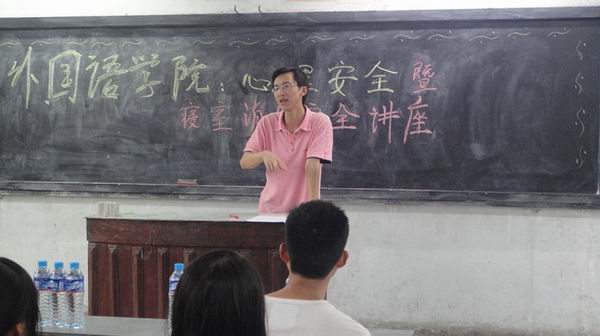 外国语学院：心理安全暨
寝室消安全讲座